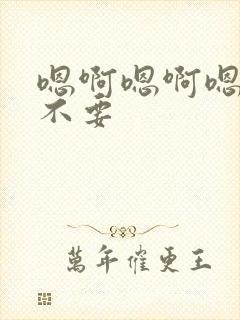 嗯啊嗯啊嗯
不要
萬年催更王